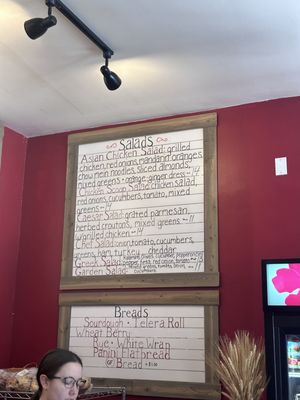 Salads
Asian Chicken Salad: grilled
chicken, red onions, mandarin oranges,
chow mein noodles, sliced almonds,
mixed greens + orange, ginger dress
Chicken Scoop Salad: chicken salad,
red onions, cucumbers, tomato, mixed
greens
Caesar Salad: grated parmesan
herbed croutons, mixed greens
w/ grilled chicken
Chef Salad: onion, tomato, cucumbers,
greens, ham, turkey, cheddar
Greek Salad:
Garden Salad:
cucumbers
Breads
Sourdough • Telera Roll
Wheat Berry
Rye • White Wrap
Panini Flatbread
GF Bread